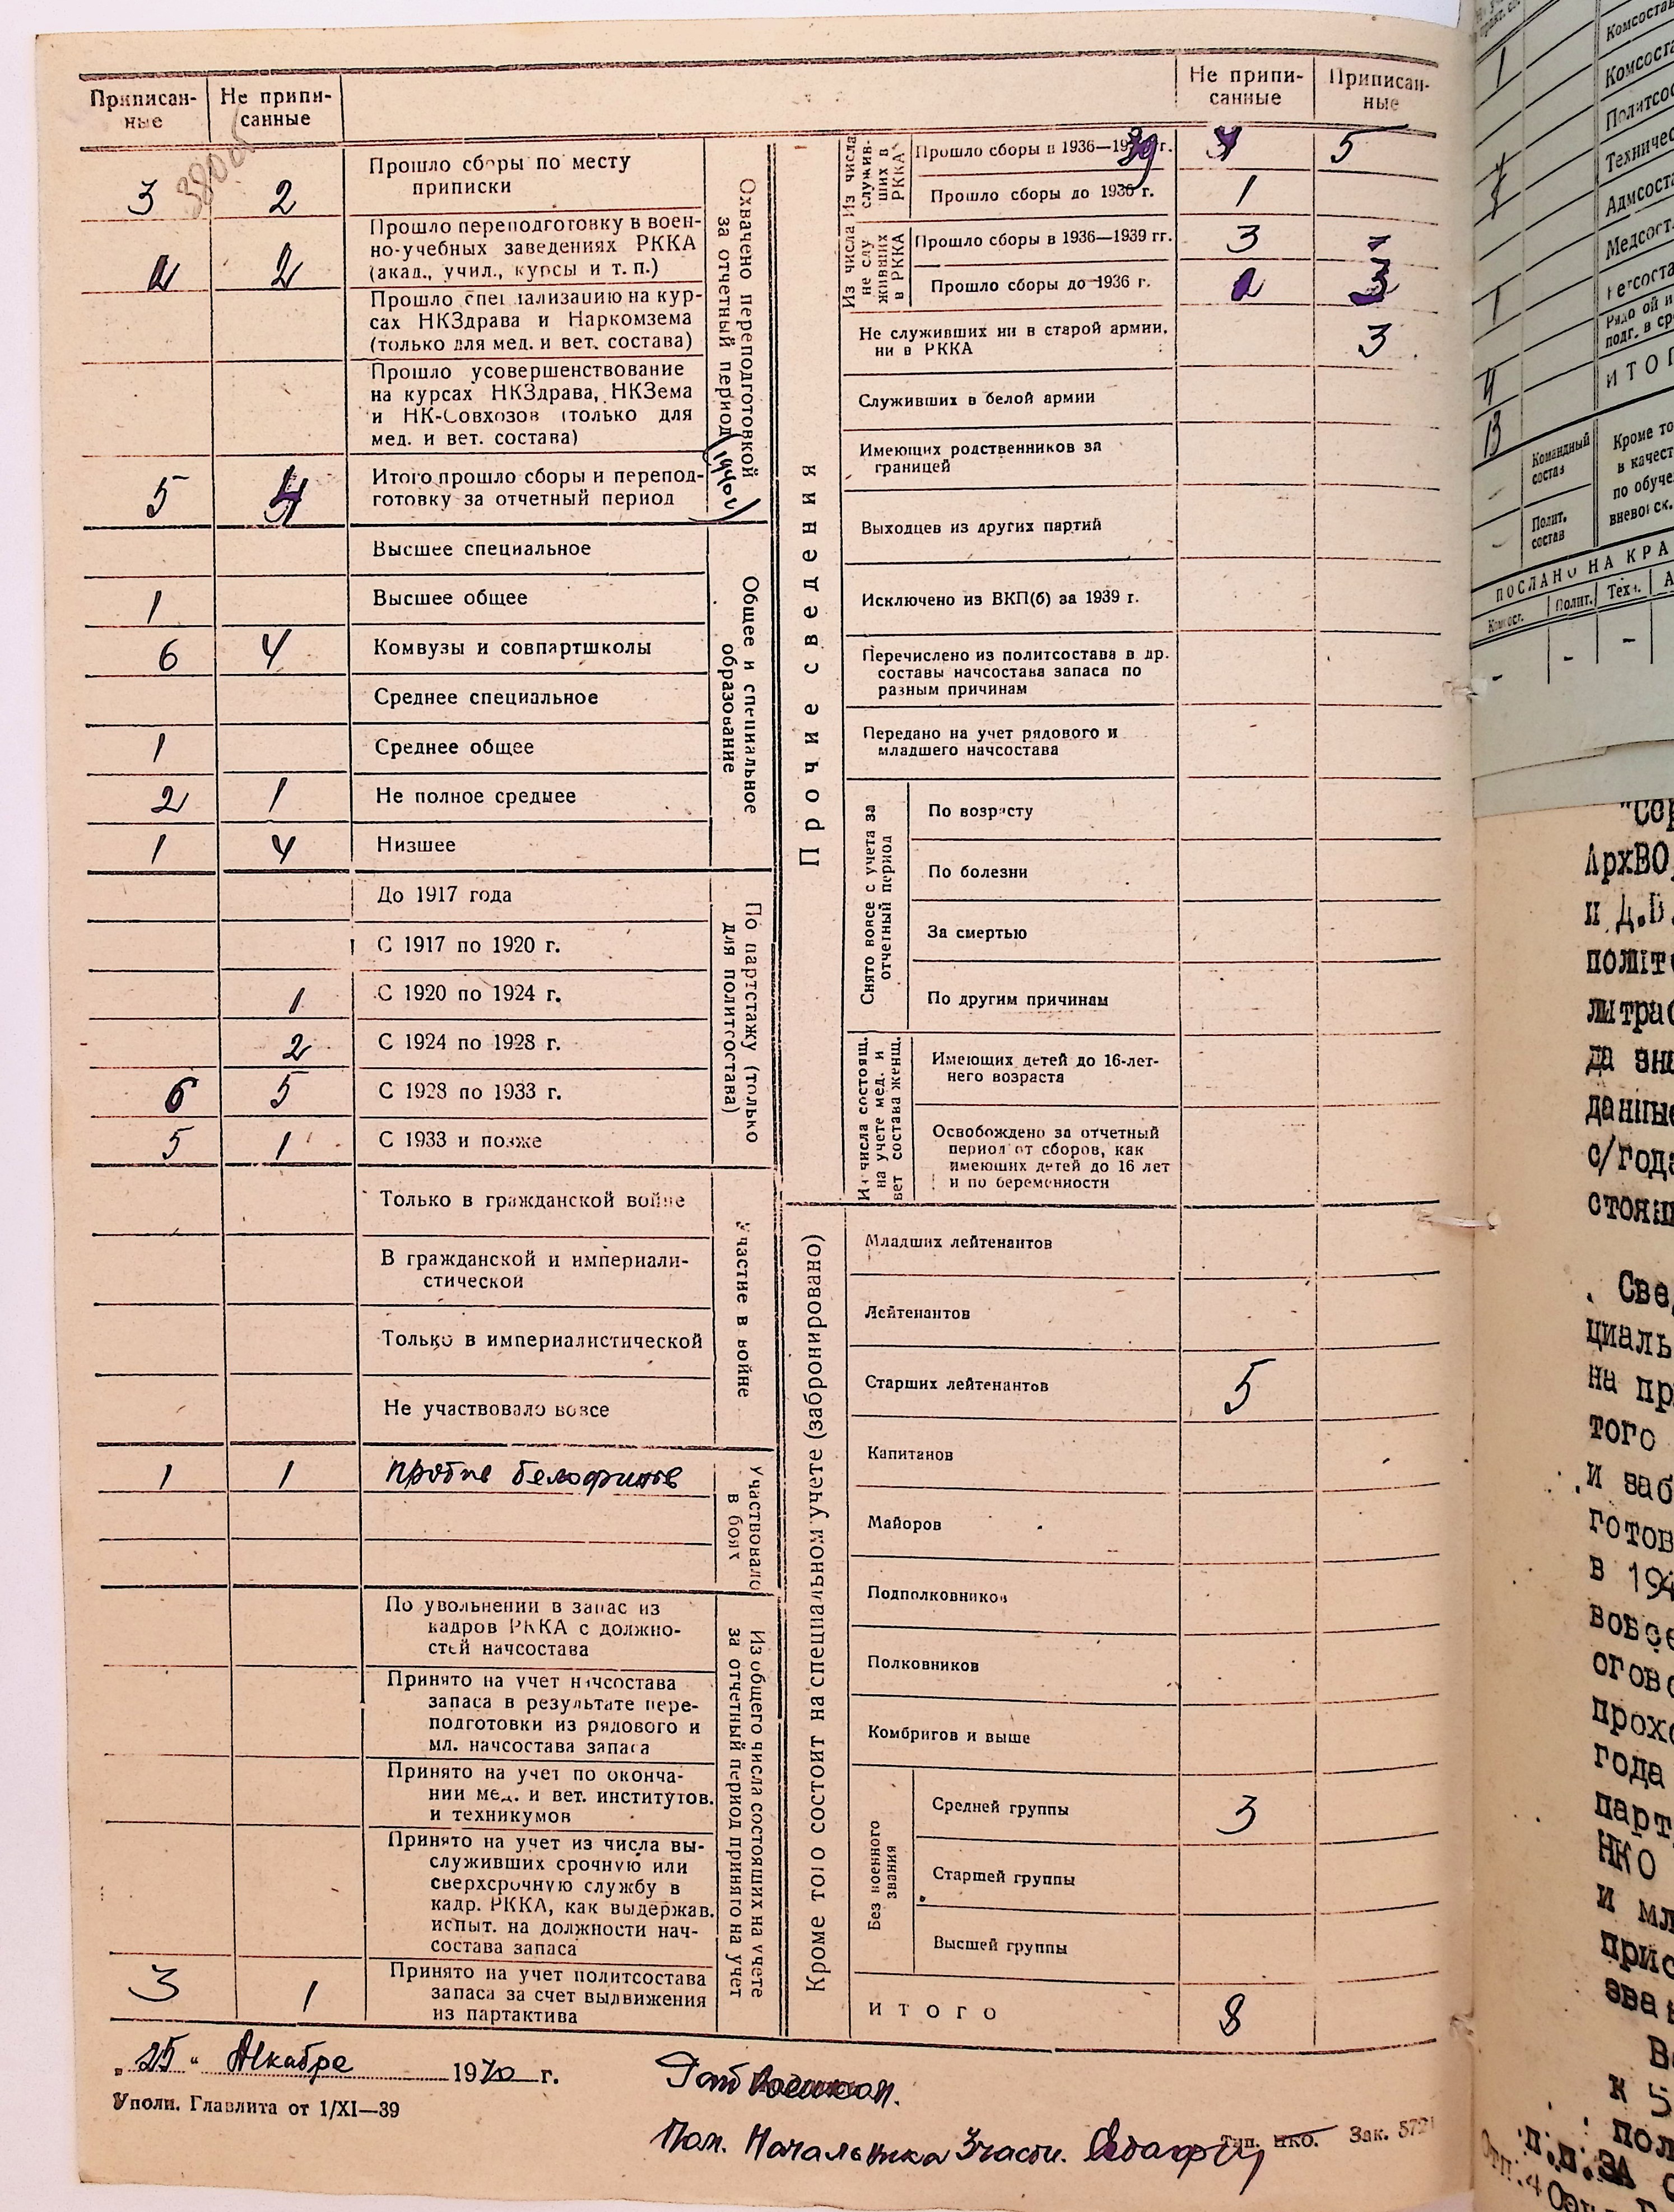 Приписан-
ные
Не припи-
санные
3 2 Прошло сборы по месту
приписки
2 2 Прошло переподготовку в воен-
но-учебных заведениях РККА
(акад., учил., курсы и т. п.)
Прошло специализацию на кур-
сах НКЗдрава и Наркомзема
(только для мед. и вет. состава)
Прошло усовершенствование
на курсах НКЗдрава, НКЗема
и НК-Совхозов (только для
мед. и вет. состава)
5 4 Итого прошло сборы и перепод-
готовку за отчетный период
Охвачено переподготовкой
за отчетный период (1940 г.)
Высшее специальное
1 Высшее общее
6 4 Комвузы и совпартшколы
Среднее специальное
1 Среднее общее
2 1 Не полное среднее
1 4 Низшее
Общее и специальное
образование
До 1917 года
С 1917 по 1920 г.
1 С 1920 по 1924 г.
2 С 1924 по 1928 г.
6 5 С 1928 по 1933 г.
5 1 С 1933 и позже
По партстажу (только
для политсостава)
Только в гражданской войне
В гражданской и империали-
стической
Только в империалистической
Не участвовало вовсе
Участие в войне
1 1 против белофинов
Участвовало
в боях
По увольнении в запас из
кадров РККА с должно-
стей начсостава
Принято на учет начсостава
запаса в результате пере-
подготовки из рядового и
мл. начсостава запаса
Принято на учет по оконча-
нии мед. и вет. институтов
и техникумов
Принято на учет из числа вы-
служивших срочную или
сверхсрочную службу в
кадр. РККА, как выдержав.
испыт. на должности нач-
состава запаса
3 1 Принято на учет политсостава
запаса за счет выдвижения
из партактива
Из общего числа состоящих на учете
за отчетный период принято на учет
Не припи-
санные
Приписан-
ные
Прочие сведения
Из числа
служив-
ших в
РККА
Прошло сборы в 1936—1939 гг. 5
Прошло сборы до 1936 г. 1
Из числа
не слу-
живших
в РККА
Прошло сборы в 1936—1939 гг. 3 –
Прошло сборы до 1936 г. 3
Не служивших ни в старой армии,
ни в РККА 3
Служивших в белой армии
Имеющих родственников за
границей
Выходцев из других партий
Исключено из ВКП(б) за 1939 г.
Перечислено из политсостава в др.
составы начсостава запаса по
разным причинам
Передано на учет рядового и
младшего начсостава
Снято вовсе с учета за
отчетный период
По возрасту
По болезни
За смертью
По другим причинам
Из числа состоящ.
на учете мед. и
вет состава женщ.
Имеющих детей до 16-лет-
него возраста
Освобождено за отчетный
период от сборов, как
имеющих детей до 16 лет
и по беременности
Кроме того состоит на специальном учете (забронировано)
Младших лейтенантов
Лейтенантов
Старших лейтенантов 5
Капитанов
Майоров
Подполковников
Полковников
Комбригов и выше
Без военного
звания
Средней группы 3
Старшей группы
Высшей группы
ИТОГО 8
„25“ Декабря 1940 г.
Уполн. Главлита от 1/XI—39
Пом. Начальника 3 части.
Тип. НКО. Зак. 572
1
1
4
13
Комсостав
Комсоста
Политсос
Техничес
Адмсоста
Медсост
ИТОГ
Командный
состав
Полит.
состав
Кроме то
в качест
по обуче
вневой ск.
ПОСЛАНО НА КРА
Полит. Техн. А
– – –
АрхВО,
и Д.В.
політ
литра
да зн
данные
с/год
стоян
Све
циаль
на пр
того
и заб
готов
в 194
вовсе
огов
прох
года
парт
НКО
и мл
прис
зва
к 5
пол
п.п.ЗА